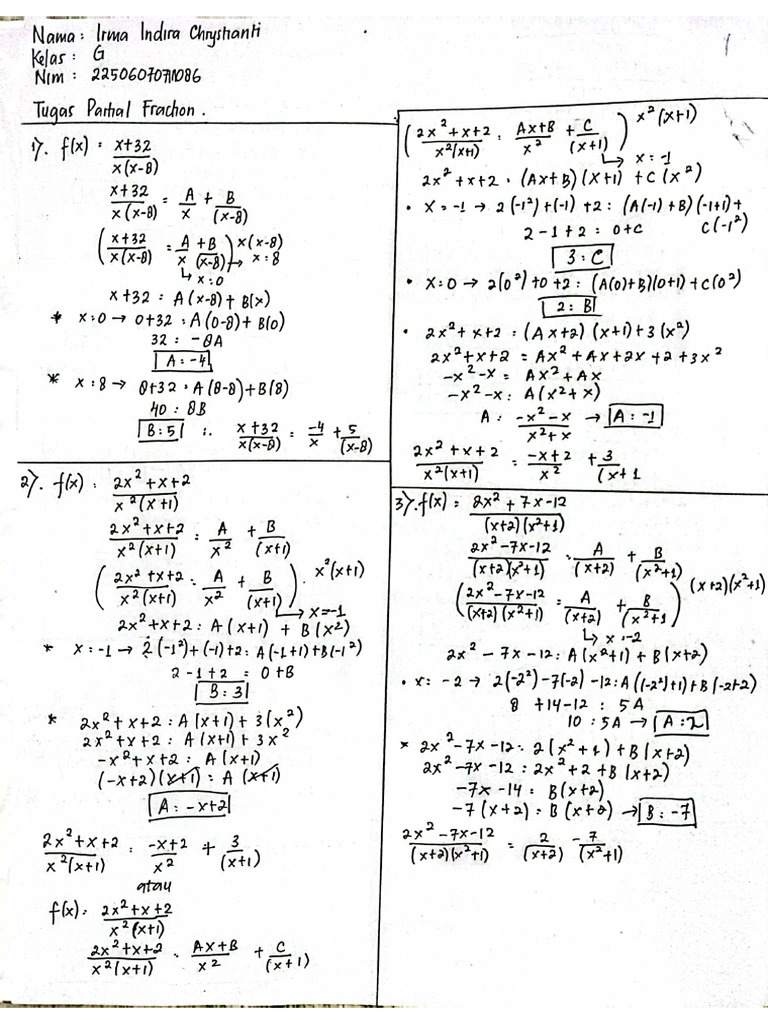 Nama : Irma Indira Chrystianti
Kelas : G
Nim : 225060707111086
Tugas Partial Fraction.
1). f(x) : x+32 / x(x-8)
x+32 / x(x-8) = A/x + B/(x-8)
(x+32 / x(x-8) = A/x + B/(x-8)) x(x-8)
↳ x:0 → x:8
x+32 : A(x-8) + B(x)
* x:0 → 0+32 : A(0-8) + B(0)
32 : -8A
A : -4
* x:8 → 8+32 : A(8-8) + B(8)
40 : 8B
B : 5 ∴ x+32 / x(x-8) = -4/x + 5/(x-8)
2). f(x) : 2x²+x+2 / x²(x+1)
2x²+x+2 / x²(x+1) : A/x² + B/(x+1)
(2x²+x+2 / x²(x+1) : A/x² + B/(x+1)) . x²(x+1)
↳ x=-1
2x²+x+2 : A(x+1) + B(x²)
* x:-1 → 2(-1²)+(-1)+2 : A(-1+1)+B(-1²)
2-1+2 = 0+B
B : 3
* 2x²+x+2 : A(x+1) + 3(x²)
2x²+x+2 : A(x+1) + 3x²
-x²+x+2 : A(x+1)
(-x+2)(x+1) : A(x+1)
A : -x+2
2x²+x+2 / x²(x+1) : -x+2 / x² + 3/(x+1)
atau
f(x) : 2x²+x+2 / x²(x+1)
2x²+x+2 / x²(x+1) : Ax+B / x² + C/(x+1)
(2x²+x+2 / x²(x+1) : Ax+B / x² + C/(x+1)) x²(x+1)
↳ x:-1
2x²+x+2 : (Ax+B)(x+1) + C(x²)
• x=-1 → 2(-1²)+(-1)+2 : (A(-1)+B)(-1+1)+
C(-1²)
2-1+2 : 0+C
3 : C
• x:0 → 2(0²)+0+2 : (A(0)+B)(0+1)+C(0²)
2 : B
• 2x²+x+2 : (Ax+2)(x+1)+3(x²)
2x²+x+2 = Ax²+Ax+2x+2+3x²
-x²-x = Ax²+Ax
-x²-x : A(x²+x)
A : -x²-x / x²+x → A : -1
2x²+x+2 / x²(x+1) = -x+2 / x² + 3/(x+1
3). f(x) = 2x²+7x-12 / (x+2)(x²+1)
2x²-7x-12 / (x+2)(x²+1) : A/(x+2) + B/(x²+1)
(2x²-7x-12 / (x+2)(x²+1) = A/(x+2) + B/(x²+1) (x+2)(x²+1)
↳ x:-2
2x²-7x-12 : A(x²+1) + B(x+2)
• x:-2 → 2(-2²)-7(-2)-12 : A((-2²)+1)+B(-2+2)
8+14-12 : 5A
10 : 5A → A : 2
* 2x²-7x-12 : 2(x²+1)+B(x+2)
2x²-7x-12 : 2x²+2+B(x+2)
-7x-14 : B(x+2)
-7(x+2) : B(x+2) → B : -7
2x²-7x-12 / (x+2)(x²+1) = 2/(x+2) -7/(x²+1)